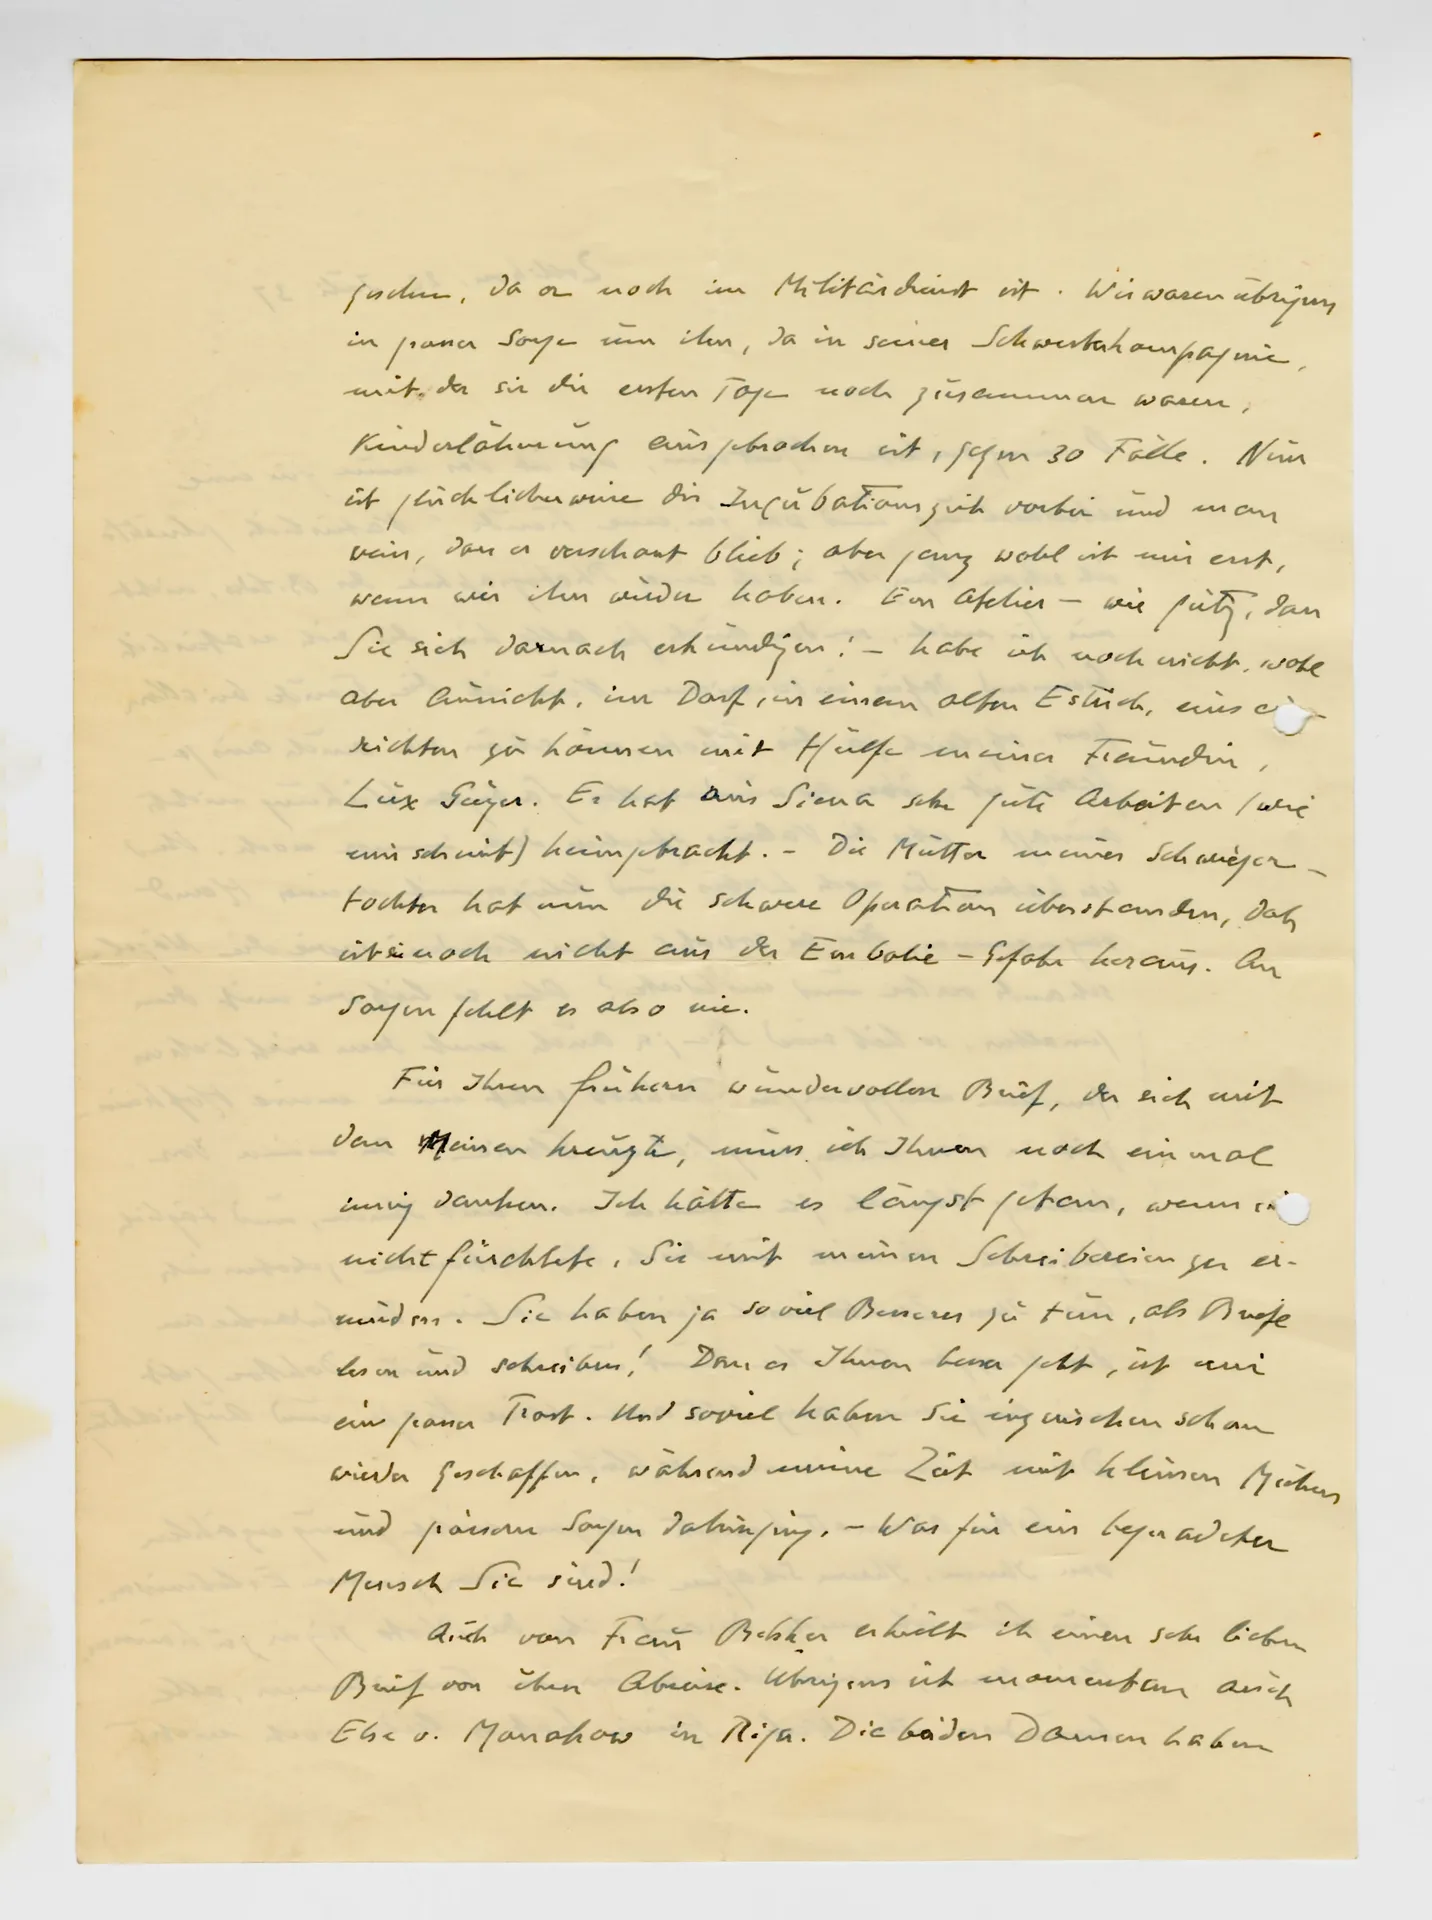 gesehen, da er noch im Militärdienst ist. Wir waren übrigens
in grosser Sorge um ihn, da in seiner Schwesterkompagnie,
mit der sie die ersten Tage noch zusammen waren,
Kinderlähmung ausgebrochen ist, gegen 30 Fälle. Nun
ist glücklicherweise die Incubationszeit vorbei und man
weiss, dass er verschont blieb; aber ganz wohl ist mir erst,
wenn wir ihn wieder haben. Ein Atelier – wie gütig, dass
Sie sich darnach erkündigen! – habe ich noch nicht, wohl
aber Aussicht, im Dorf, in einem alten Estrich, eins ein-
richten zu können mit Hülfe meiner Freundin,
Lux Guyer. Er hat aus Siena sehr gute Arbeiten (wie
mir scheint) heimgebracht. – Die Mutter meiner Schwieger-
tochter hat nun die schwere Operation überstanden, doch
ist sie noch nicht aus der Embolie-Gefahr heraus. An
Sorgen fehlt es also nie.
Für Ihren frühern wundervollen Brief, der sich mit
dem Meinen kreuzte, muss ich Ihnen noch einmal
innig danken. Ich hätte es längst getan, wenn ich
nicht fürchtete, Sie mit meinen Schreibereien zu er-
müden. Sie haben ja soviel Besseres zu tun, als Briefe
lesen und schreiben! Dass es Ihnen besser geht, ist mir
ein grosser Trost. Und soviel haben Sie inzwischen schon
wieder geschaffen, während meine Zeit mit kleinen Mühen
und grossen Sorgen dahinging. – Was für ein begnadeter
Mensch Sie sind!
Auch von Frau Bebker erhielt ich einen sehr lieben
Brief vor ihrer Abreise. Übrigens ist momentan auch
Else v. Monakow in Riga. Die beiden Damen haben